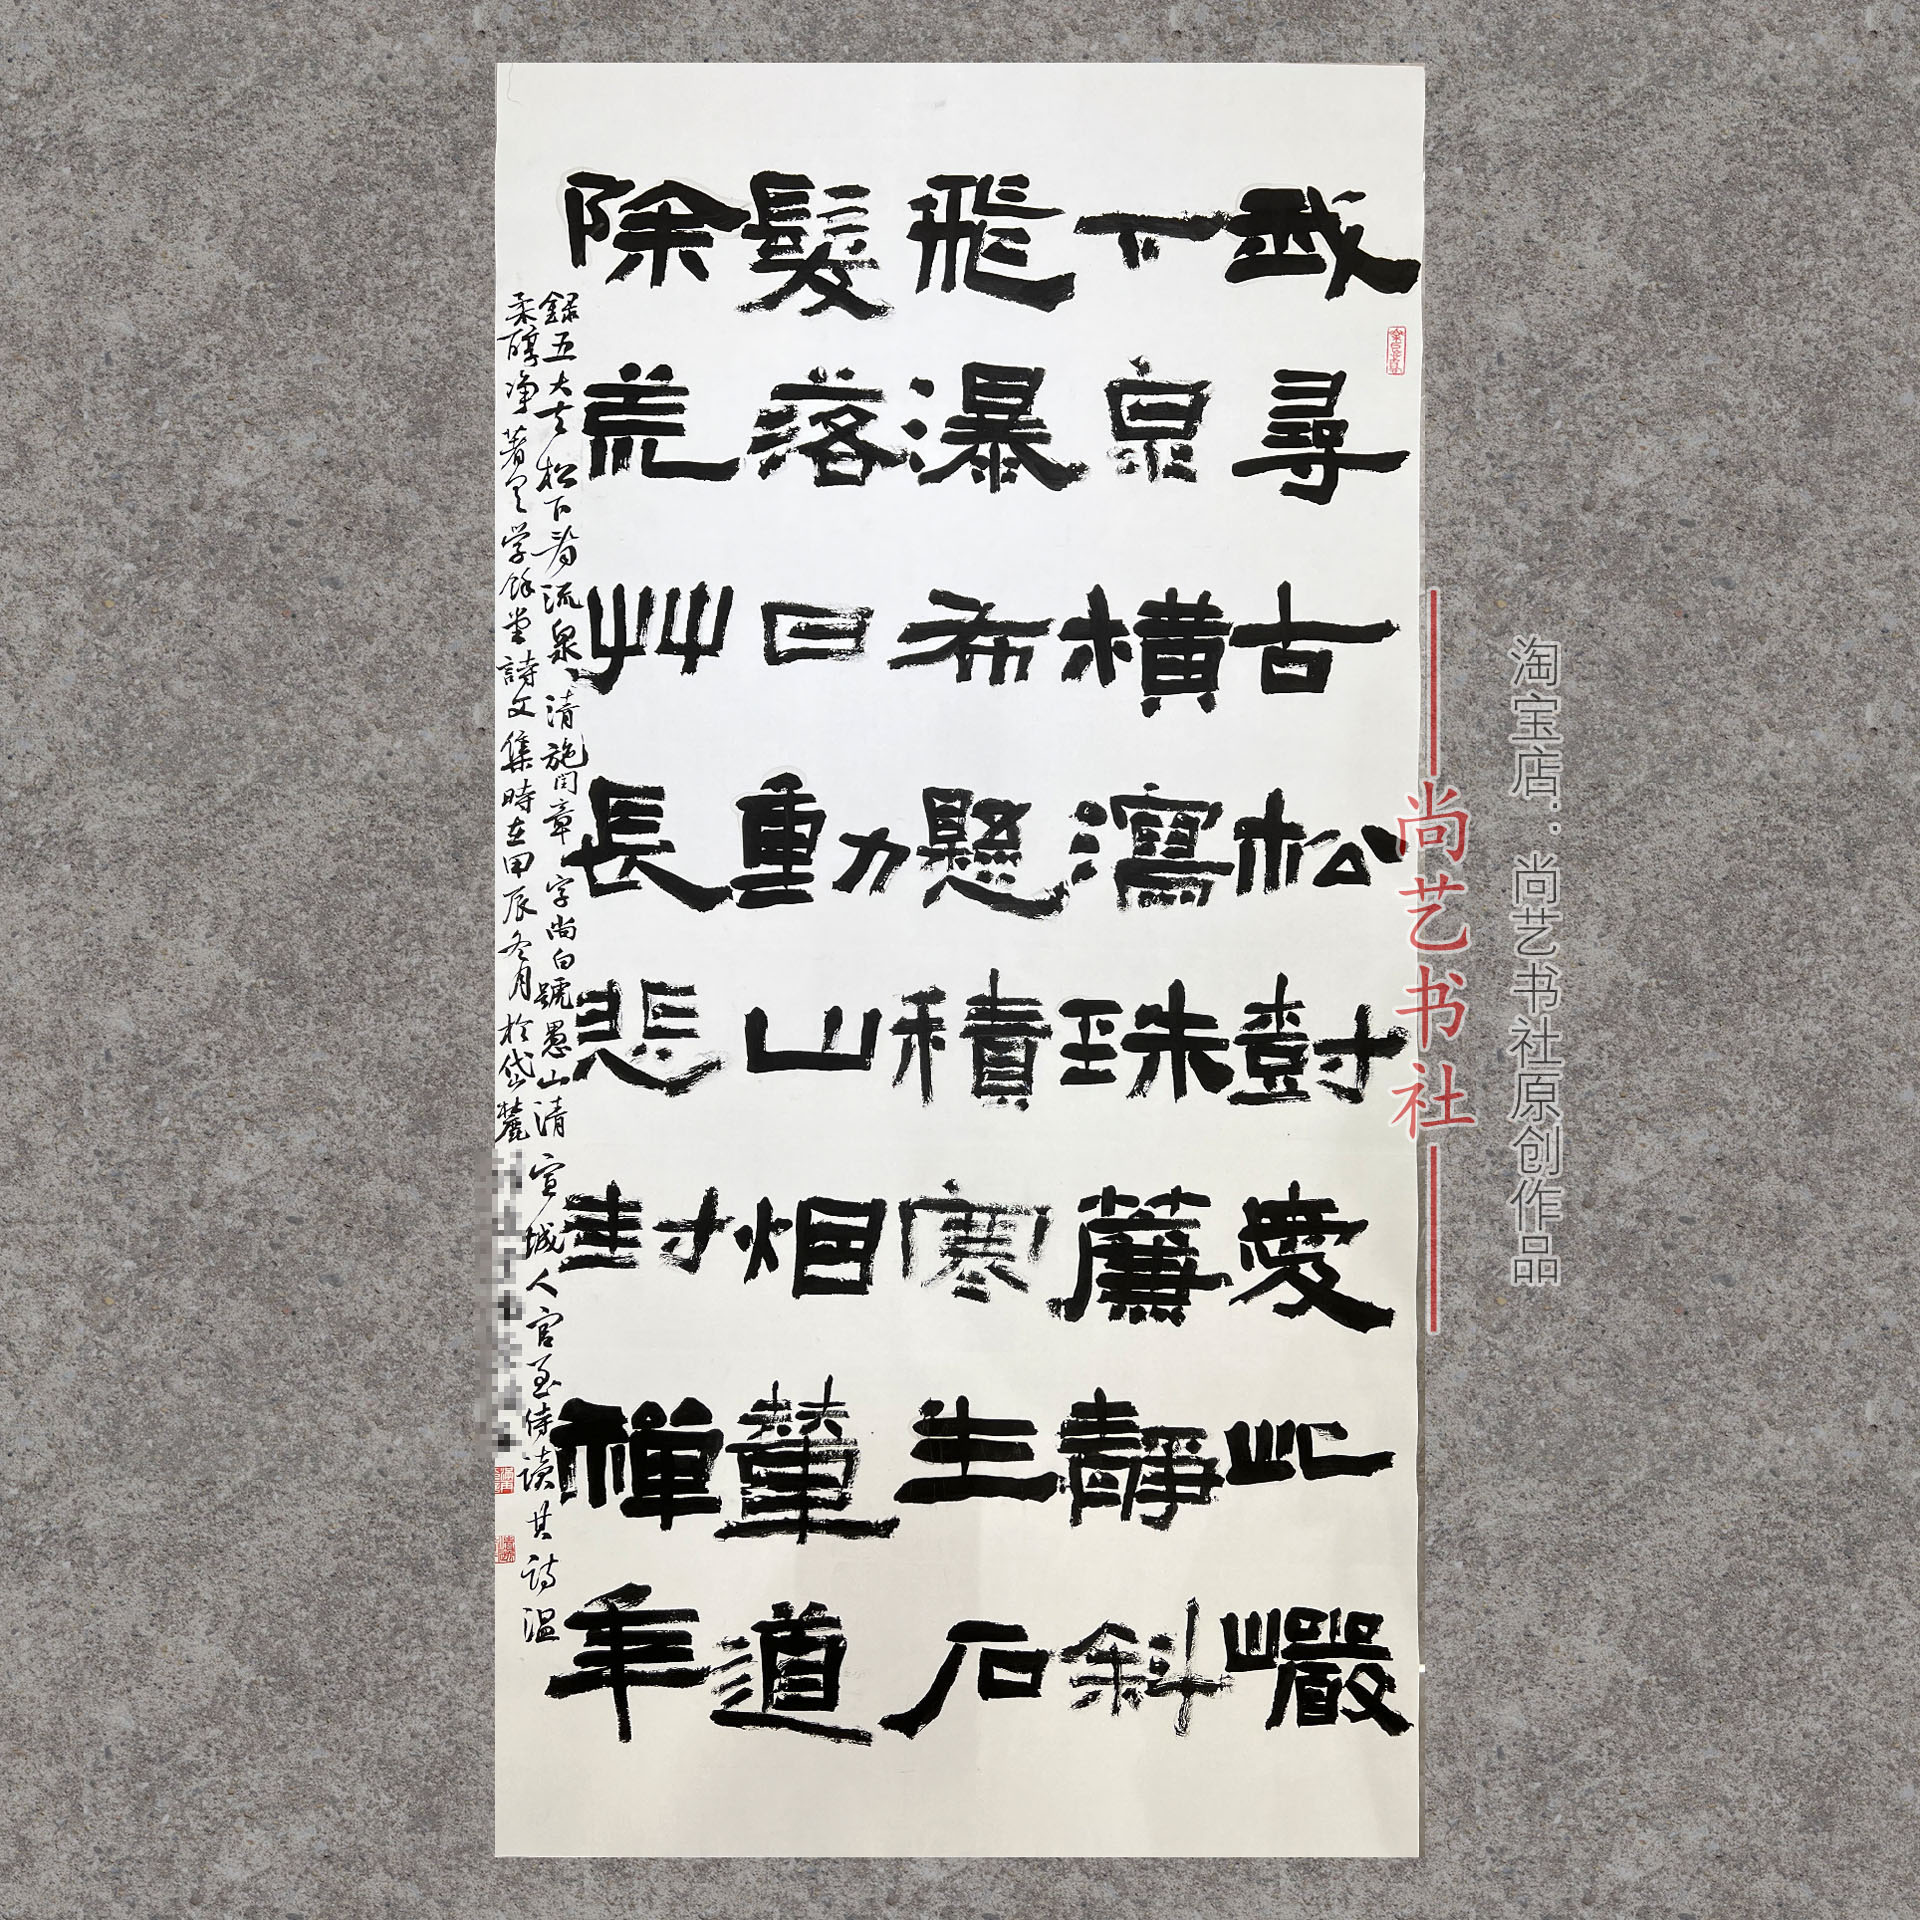 我尋古松樹愛此巖
下泉橫瀉珠簾靜斜
飛瀑布懸積寒生石
髮落日動山烟輦道
除荒艸長悲封禪年
録五大夫松下看流泉清施闰章字尚白號愚山清宣城人官至侍讀其詩温
柔醇净著有学餘堂詩文集時在甲辰冬月於岱麓
尚艺书社
淘宝店：尚艺书社原创作品